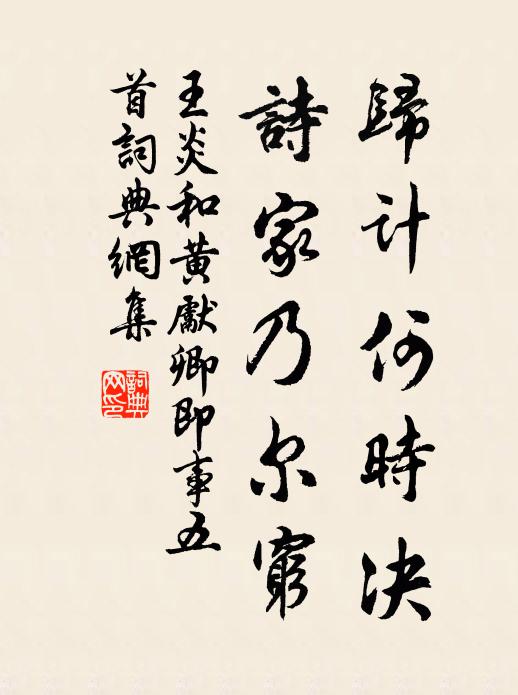 歸計何時決
詩家乃尔窮
王炎和黃獻卿即事五
首詞典網集
詞典
网印